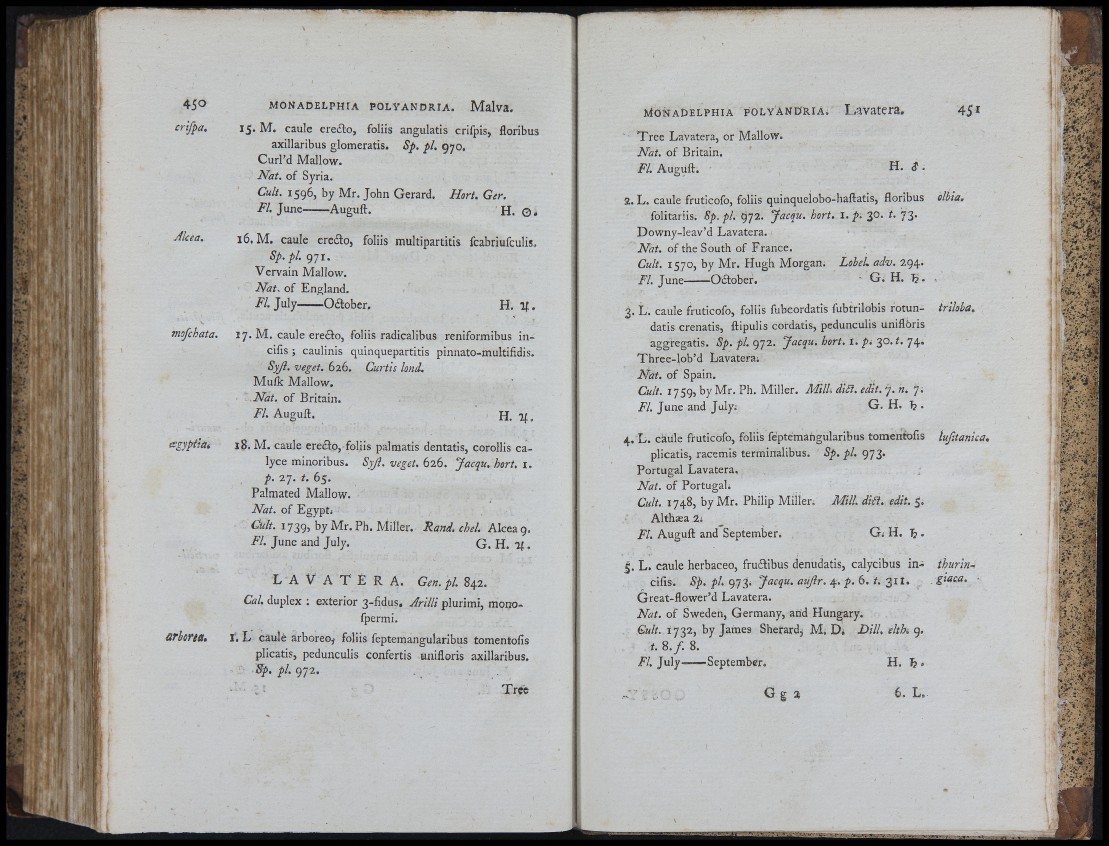 450 MONADELPHIA POLYANDRIA. Malva.
criſpa. 15. M. caule erecto, foliis angulatis criſpis, floribus
axillaribus glomeratis. Sp. pl. 970.
Curl'd Mallow.
Nat. of Syria.
Cult. 1596, by Mr. John Gerard. Hort. Ger.
Fl. June——Auguſt. H. ☉.
Alcea. 16. M. caule erecto, foliis multipartitis ſcabriuſculis.
Sp. pl. 971.
Vervain Mallow.
Nat. of England.
Fl. July——October. H. ♃.
moſchata. 17. M. caule erecto, foliis radicalibus reniformibus in-
ciſis; caulinis quinquepartitis pinnato-multifidis.
Syſt. veget. 626. Curtis lond.
Muſk Mallow.
Nat. of Britain.
Fl. Auguſt. H. ♃.
ægyptia. 18. M. caule erecto, foliis palmatis dentatis, corollis ca-
lyce minoribus. Syſt. veget. 626. Jacqu. hort. 1.
p. 27. t. 65.
Palmated Mallow.
Nat. of Egypt.
Cult. 1739, by Mr. Ph. Miller. Rand. chel. Alcea 9.
Fl. June and July. G. H. ♃.
LAVATERA. Gen. pl. 842.
Cal. duplex : exterior 3-fidus. Arilli plurimi, mono-
ſpermi.
arborea. 1. L caule arboreo, foliis ſeptemangularibus tomentoſis
plicatis, pedunculis confertis unifloris axillaribus.
Sp. pl. 972.
Tree
MONADELPHIA POLYANDRIA. Lavatera. 451
Tree Lavatera, or Mallow.
Nat. of Britain.
Fl. Auguſt. H. ♂.
2. L. caule fruticoſo, foliis quinquelobo-haſtatis, floribus olbia.
ſolitariis. Sp. pl. 972. Jacqu. hort. 1. p. 30. t. 73.
Downy-leav'd Lavatera.
Nat. of the South of France.
Cult. 1570, by Mr. Hugh Morgan. Lobel. adv. 294.
Fl. June——October. G. H. ♄.
3. L. caule fruticoſo, foliis ſubcordatis ſubtrilobis rotun- triloba.
datis crenatis, ſtipulis cordatis, pedunculis unifloris
aggregatis. Sp. pl. 972. Jacqu. hort. 1. p. 30. t. 74.
Three-lob'd Lavatera.
Nat. of Spain.
Cult. 1759, by Mr. Ph. Miller. Mill. dict. edit. 7. n. 7.
Fl. June and July. G. H. ♄.
4. L. caule fruticoſo, foliis ſeptemangularibus tomentoſis luſitanica.
plicatis, racemis terminalibus. Sp. pl. 973.
Portugal Lavatera.
Nat. of Portugal.
Cult. 1748, by Mr. Philip Miller. Mill. dict. edit. 5.
Althæa 2.
Fl. Auguſt and September. G. H. ♄.
5. L. caule herbaceo, fructibus denudatis, calycibus in- thurin-
ciſis. Sp. pl. 973. Jacqu. auſtr. 4. p. 6. t. 311. giaca.
Great-flower'd Lavatera.
Nat. of Sweden, Germany, and Hungary.
Cult. 1732, by James Sherard, M. D. Dill. elth. 9.
t. 8. f. 8.
Fl. July——September. H. ♄.
G g 2 6. L.